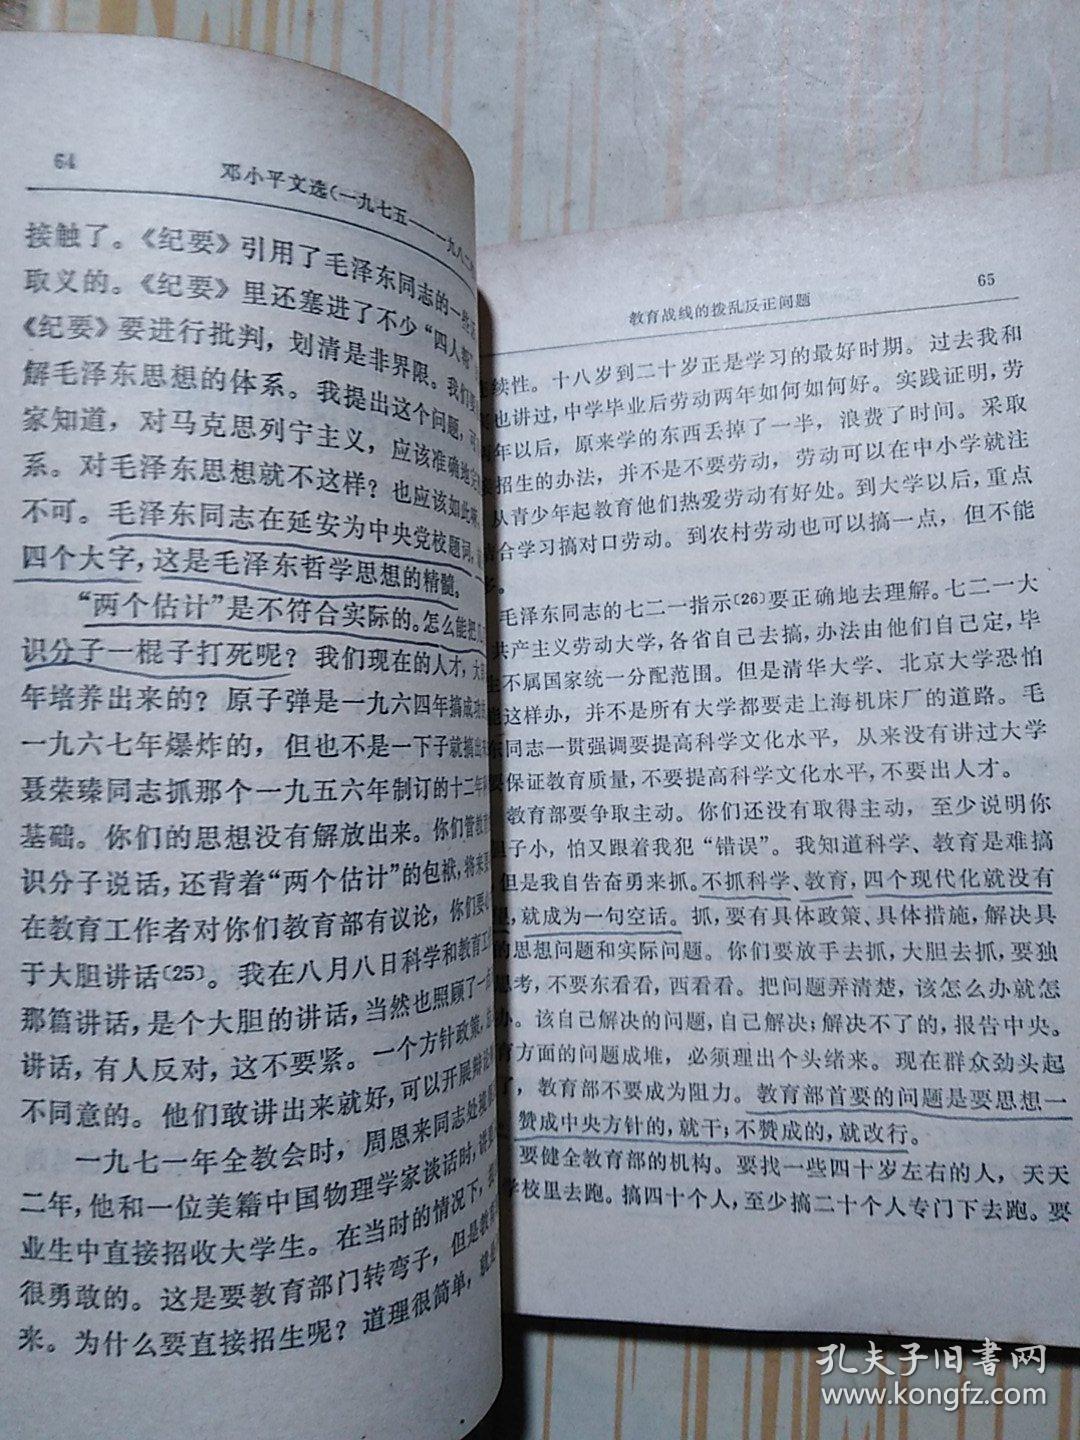 64
邓小平文选(一九七五——一九八二
接触了。《纪要》引用了毛泽东同志的一些
取义的。《纪要》里还塞进了不少“四人帮”
《纪要》要进行批判，划清是非界限。我们要
解毛泽东思想的体系。我提出这个问题，可
家知道，对马克思列宁主义，应该准确地完
系。对毛泽东思想就不这样？也应该如此嘛，
不可。毛泽东同志在延安为中央党校题词，
四个大字，这是毛泽东哲学思想的精髓。
“两个估计”是不符合实际的。怎么能把几
识分子一棍子打死呢？我们现在的人才，大
年培养出来的？原子弹是一九六四年搞成功
一九六七年爆炸的，但也不是一下子就搞出
聂荣臻同志抓那个一九五六年制订的十二年
基础。你们的思想没有解放出来。你们管教
识分子说话，还背着“两个估计”的包袱，将来要
在教育工作者对你们教育部有议论，你们要
于大胆讲话〔25〕。我在八月八日科学和教育工
那篇讲话，是个大胆的讲话，当然也照顾了一
讲话，有人反对，这不要紧。一个方针政策，
不同意的。他们敢讲出来就好，可以开展辩论
一九七一年全教会时，周恩来同志处境
二年，他和一位美籍中国物理学家谈话时，讲
业生中直接招收大学生。在当时的情况下，
很勇敢的。这是要教育部门转弯子，但是教
来。为什么要直接招生呢？道理很简单，就
教育战线的拨乱反正问题
65
续性。十八岁到二十岁正是学习的最好时期。过去我和
也讲过，中学毕业后劳动两年如何如何好。实践证明，劳
年以后，原来学的东西丢掉了一半，浪费了时间。采取
招生的办法，并不是不要劳动，劳动可以在中小学就注
从青少年起教育他们热爱劳动有好处。到大学以后，重点
合学习搞对口劳动。到农村劳动也可以搞一点，但不能
。
毛泽东同志的七二一指示〔26〕要正确地去理解。七二一大
共产主义劳动大学，各省自己去搞，办法由他们自己定，毕
不属国家统一分配范围。但是清华大学、北京大学恐怕
能这样办，并不是所有大学都要走上海机床厂的道路。毛
东同志一贯强调要提高科学文化水平，从来没有讲过大学
要保证教育质量，不要提高科学文化水平，不要出人才。
教育部要争取主动。你们还没有取得主动，至少说明你
胆子小，怕又跟着我犯“错误”。我知道科学、教育是难搞
但是我自告奋勇来抓。不抓科学、教育，四个现代化就没有
，就成为一句空话。抓，要有具体政策、具体措施，解决具
的思想问题和实际问题。你们要放手去抓，大胆去抓，要独
思考，不要东看看，西看看。把问题弄清楚，该怎么办就怎
办。该自己解决的问题，自己解决；解决不了的，报告中央。
育方面的问题成堆，必须理出个头绪来。现在群众劲头起
了，教育部不要成为阻力。教育部首要的问题是要思想一
赞成中央方针的，就干；不赞成的，就改行。
要健全教育部的机构。要找一些四十岁左右的人，天天
学校里去跑。搞四十个人，至少搞二十个人专门下去跑。要
孔夫子旧書网
www.kongfz.com